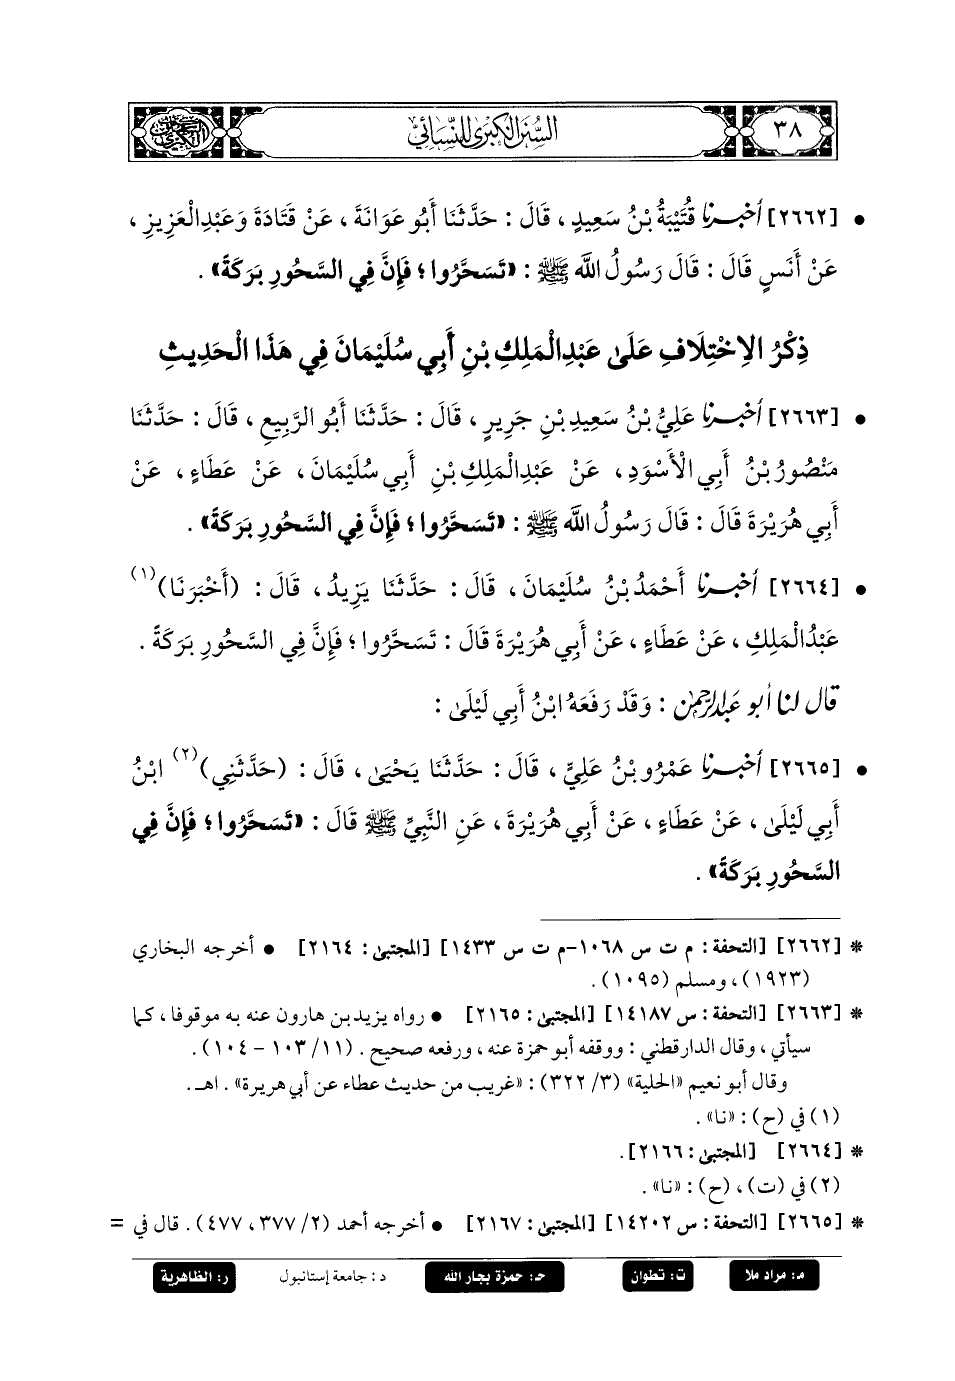 ٣٨
السنن الكبرى للنسائي
• [٢٦٦٢] أخبرنا قُتَيْبَةُ بْنُ سَعِيدٍ ، قَالَ : حَدَّثَنَا أَبُو عَوَانَةَ ، عَنْ قَتَادَةَ وَعَبْدِالْعَزِيزِ ،
عَنْ أَنَسٍ قَالَ : قَالَ رَسُولُ اللَّه ﷺ : «تَسَحَّرُوا ؛ فَإِنَّ فِي السَّحُورِ بَرَكَةً» .
ذِكْرُ الِاخْتِلَافِ عَلَى عَبْدِالْمَلِكِ بْنِ أَبِي سُلَيْمَانَ فِي هَذَا الْحَدِيثِ
• [٢٦٦٣] أخبرنا عَلِيُّ بْنُ سَعِيدِ بْنِ جَرِيرٍ ، قَالَ : حَدَّثَنَا أَبُو الرَّبِيعِ ، قَالَ : حَدَّثَنَا
مَنْصُورُ بْنُ أَبِي الْأَسْوَدِ ، عَنْ عَبْدِالْمَلِكِ بْنِ أَبِي سُلَيْمَانَ ، عَنْ عَطَاءٍ ، عَنْ
أَبِي هُرَيْرَةَ قَالَ : قَالَ رَسُولُ اللَّه ﷺ : «تَسَحَّرُوا ؛ فَإِنَّ فِي السَّحُورِ بَرَكَةً» .
• [٢٦٦٤] أخبرنا أَحْمَدُ بْنُ سُلَيْمَانَ ، قَالَ : حَدَّثَنَا يَزِيدُ ، قَالَ : (أَخْبَرَنَا)(١)
عَبْدُالْمَلِكِ ، عَنْ عَطَاءٍ ، عَنْ أَبِي هُرَيْرَةَ قَالَ : تَسَحَّرُوا ؛ فَإِنَّ فِي السَّحُورِ بَرَكَةً .
قال لنا أبو عبدالرحمن : وَقَدْ رَفَعَهُ ابْنُ أَبِي لَيْلَى :
• [٢٦٦٥] أخبرنا عَمْرُو بْنُ عَلِيٍّ ، قَالَ : حَدَّثَنَا يَحْيَى ، قَالَ : (حَدَّثَنِي)(٢) ابْنُ
أَبِي لَيْلَى ، عَنْ عَطَاءٍ ، عَنْ أَبِي هُرَيْرَةَ ، عَنِ النَّبِيِّ ﷺ قَالَ : «تَسَحَّرُوا ؛ فَإِنَّ فِي
السَّحُورِ بَرَكَةً» .
* [٢٦٦٢] [التحفة : م ت س ١٠٦٨-م ت س ١٤٣٣] [المجتبى : ٢١٦٤] • أخرجه البخاري
(١٩٢٣) ، ومسلم (١٠٩٥) .
* [٢٦٦٣] [التحفة : س ١٤١٨٧] [المجتبى : ٢١٦٥] • رواه يزيد بن هارون عنه به موقوفا ، كما
سيأتي ، وقال الدارقطني : ووقفه أبو حمزة عنه ، ورفعه صحيح . (١١/ ١٠٣ - ١٠٤) .
وقال أبو نعيم «الحلية» (٣/ ٣٢٢) : «غريب من حديث عطاء عن أبي هريرة» . اهـ .
(١) في (ح) : «نا» .
* [٢٦٦٤] [المجتبى : ٢١٦٦] .
(٢) في (ت) ، (ح) : «نا» .
* [٢٦٦٥] [التحفة : س ١٤٢٠٢] [المجتبى : ٢١٦٧] • أخرجه أحمد (٢/ ٣٧٧ ، ٤٧٧) . قال في =
م: مراد ملا ت: تطوان حـ: حمزة بجار الله د : جامعة إستانبول ر: الظاهرية